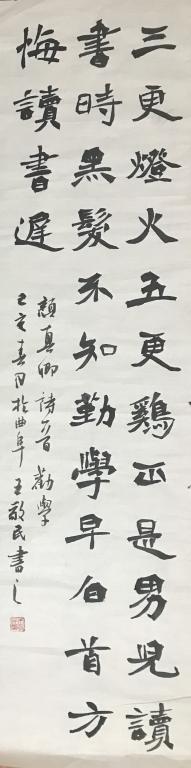 三更燈火五更鷄正是男兒讀
書時黑髮不知勤學早白首方
悔讀書遲
顏真卿詩一首勸學
己亥春月於曲阜王敬民書之